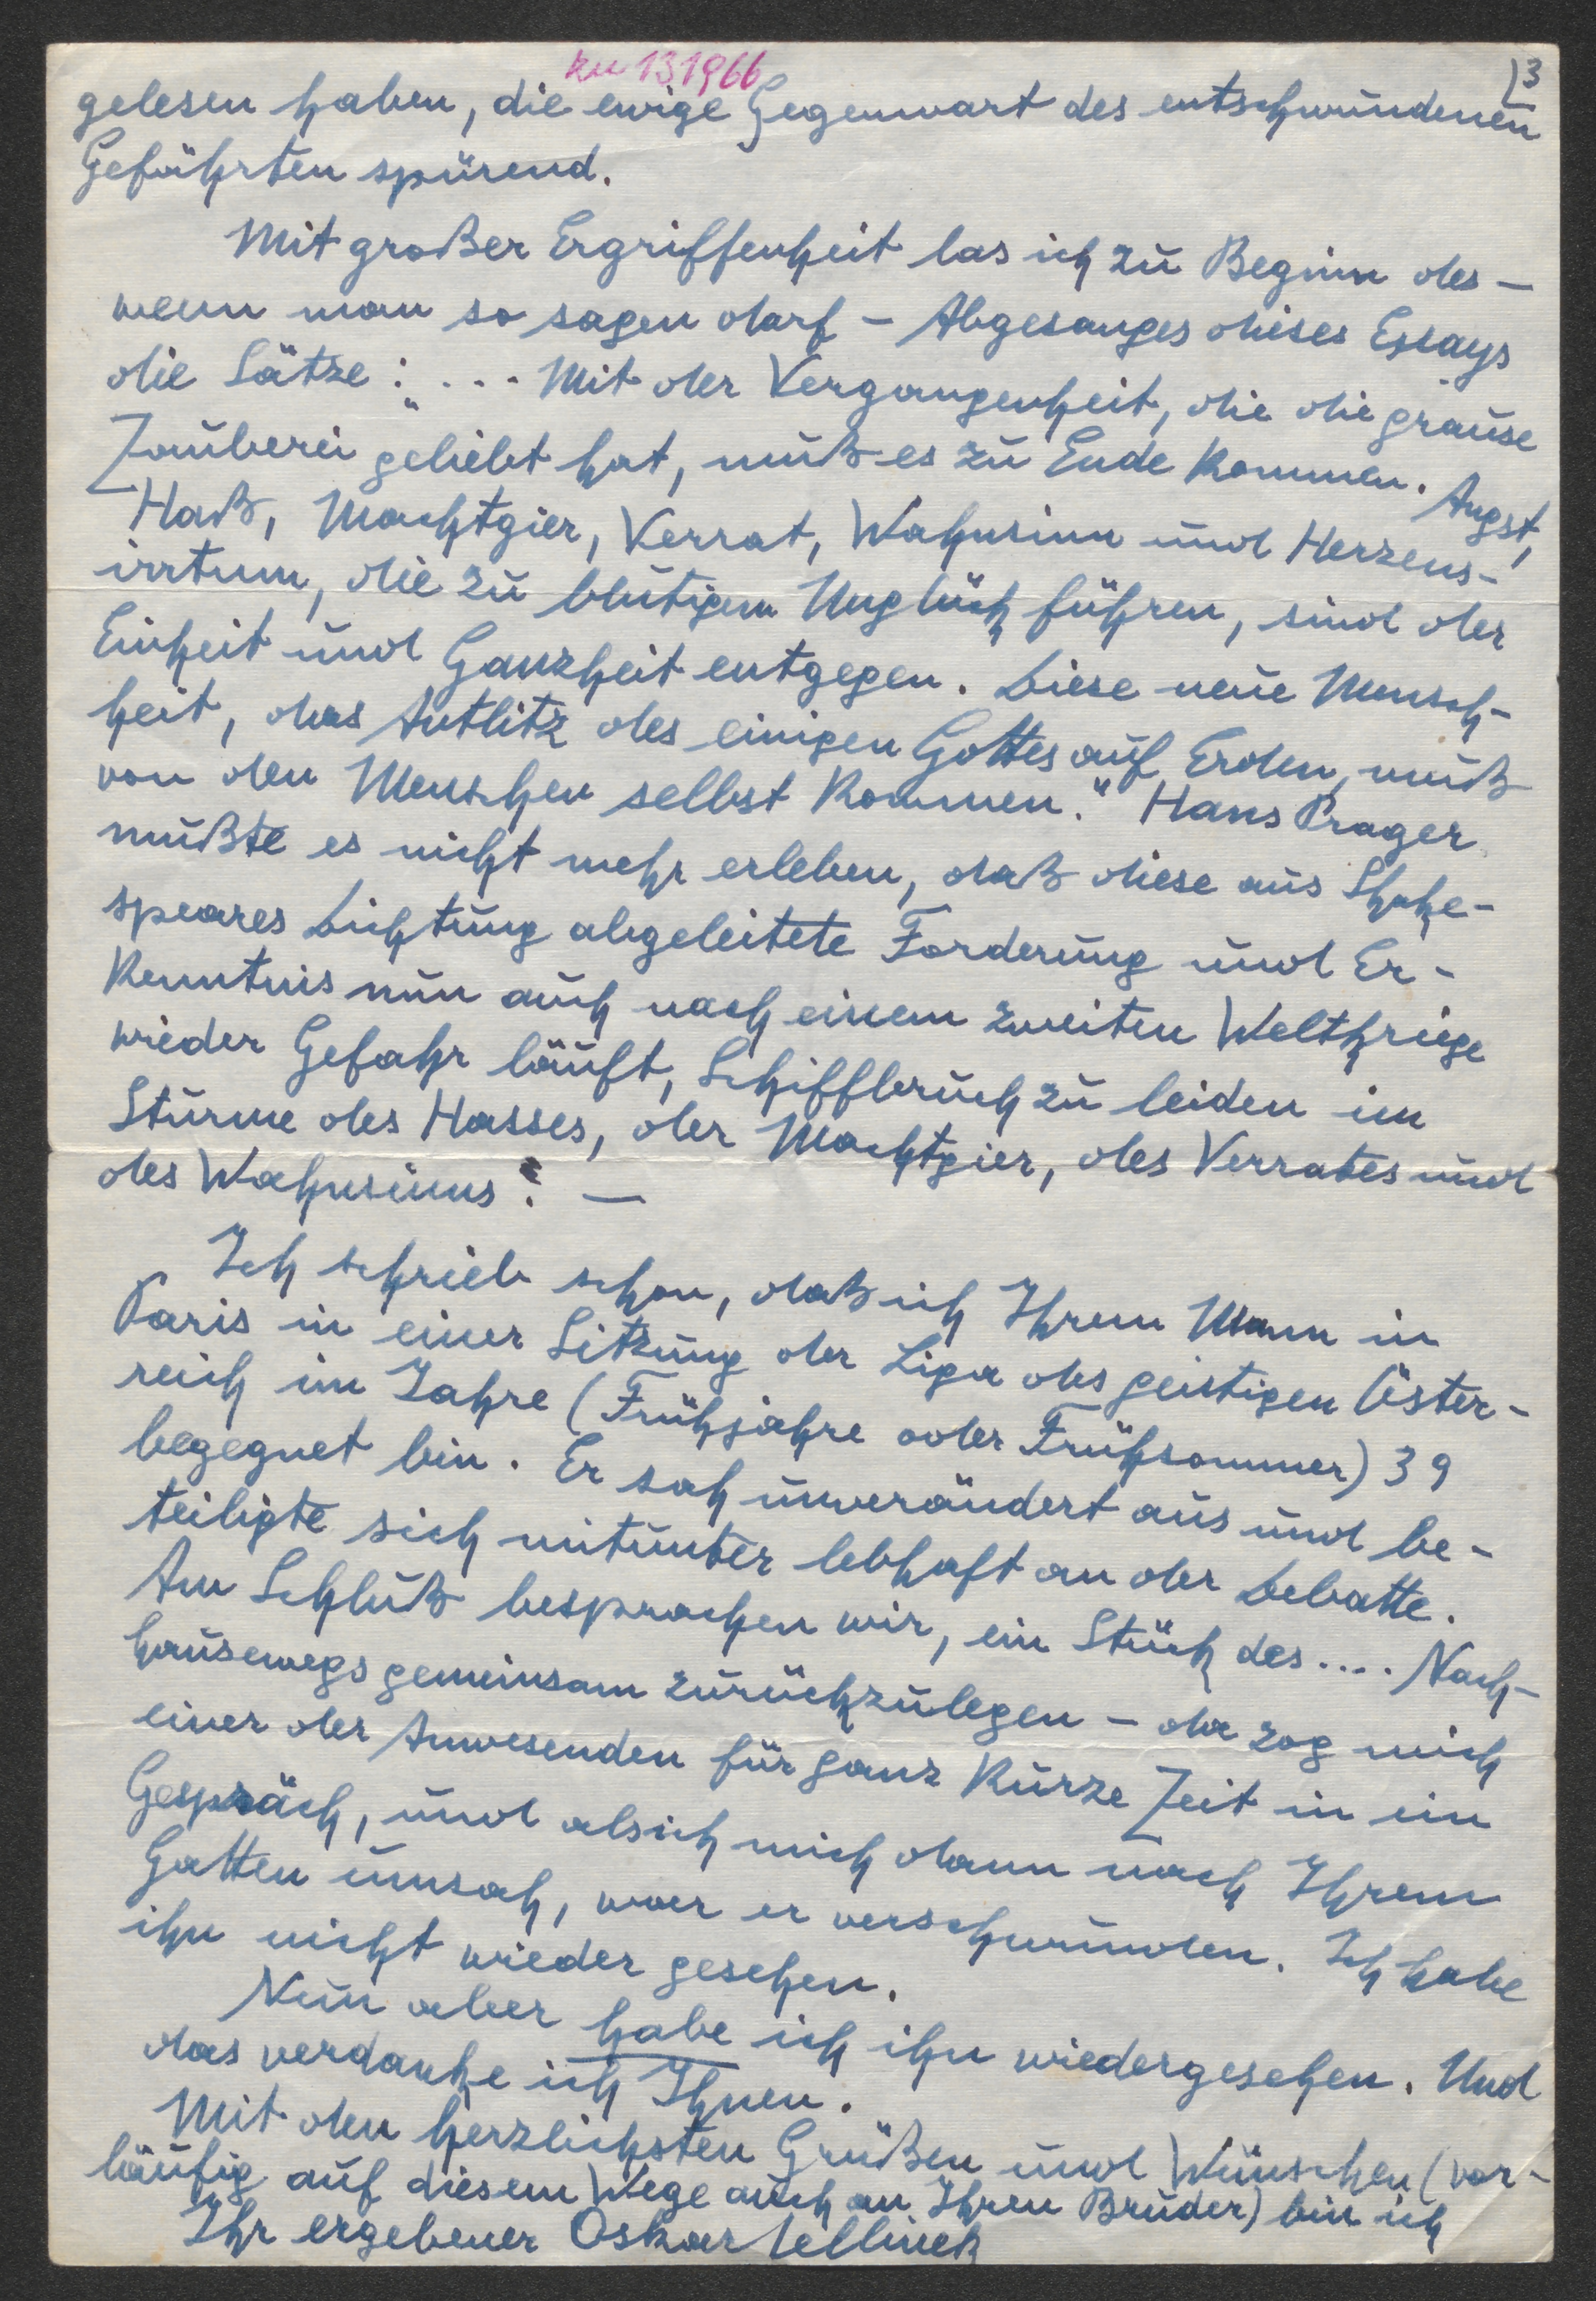 ku 131966
3
gelesen haben, die ewige Gegenwart des entschwundenen
Gefährten spürend.
Mit großer Ergriffenheit las ich zu Beginn des –
wenn man so sagen darf – Abgesanges dieses Essays
die Sätze: „... Mit der Vergangenheit, die die grause
Zauberei geliebt hat, muß es zu Ende kommen. Angst,
Haß, Machtgier, Verrat, Wahnsinn und Herzens-
irrtum, die zu blutigem Unglück führen, sind der
Einheit und Ganzheit entgegen. Diese neue Mensch-
heit, das Antlitz des einigen Gottes auf Erden, muß
von den Menschen selbst kommen.“ Hans Prager
mußte es nicht mehr erleben, daß diese aus Shake-
speares Dichtung abgeleitete Forderung und Er-
kenntnis nun auch nach einem zweiten Weltkriege
wieder Gefahr läuft, Schiffbruch zu leiden im
Sturme des Hasses, der Machtgier, des Verrates und
des Wahnsinns! –
Ich schrieb schon, daß ich Ihrem Mann in
Paris in einer Sitzung der Liga des geistigen Öster-
reich im Jahre (Frühjahre oder Frühsommer) 39
begegnet bin. Er sah unverändert aus und be-
teiligte sich mitunter lebhaft an der Debatte.
Am Schluß besprachen wir, ein Stück des .... Nach-
hausewegs gemeinsam zurückzulegen – da zog mich
einer der Anwesenden für ganz kurze Zeit in ein
Gespräch, und als ich mich dann nach Ihrem
Gatten umsah, war er verschwunden. Ich habe
ihn nicht wieder gesehen.
Nun aber habe ich ihn wiedergesehen. Und
das verdanke ich Ihnen.
Mit den herzlichsten Grüßen und Wünschen (vor-
läufig auf diesem Wege auch an Ihren Bruder) bin ich
Ihr ergebener Oskar Jellinek